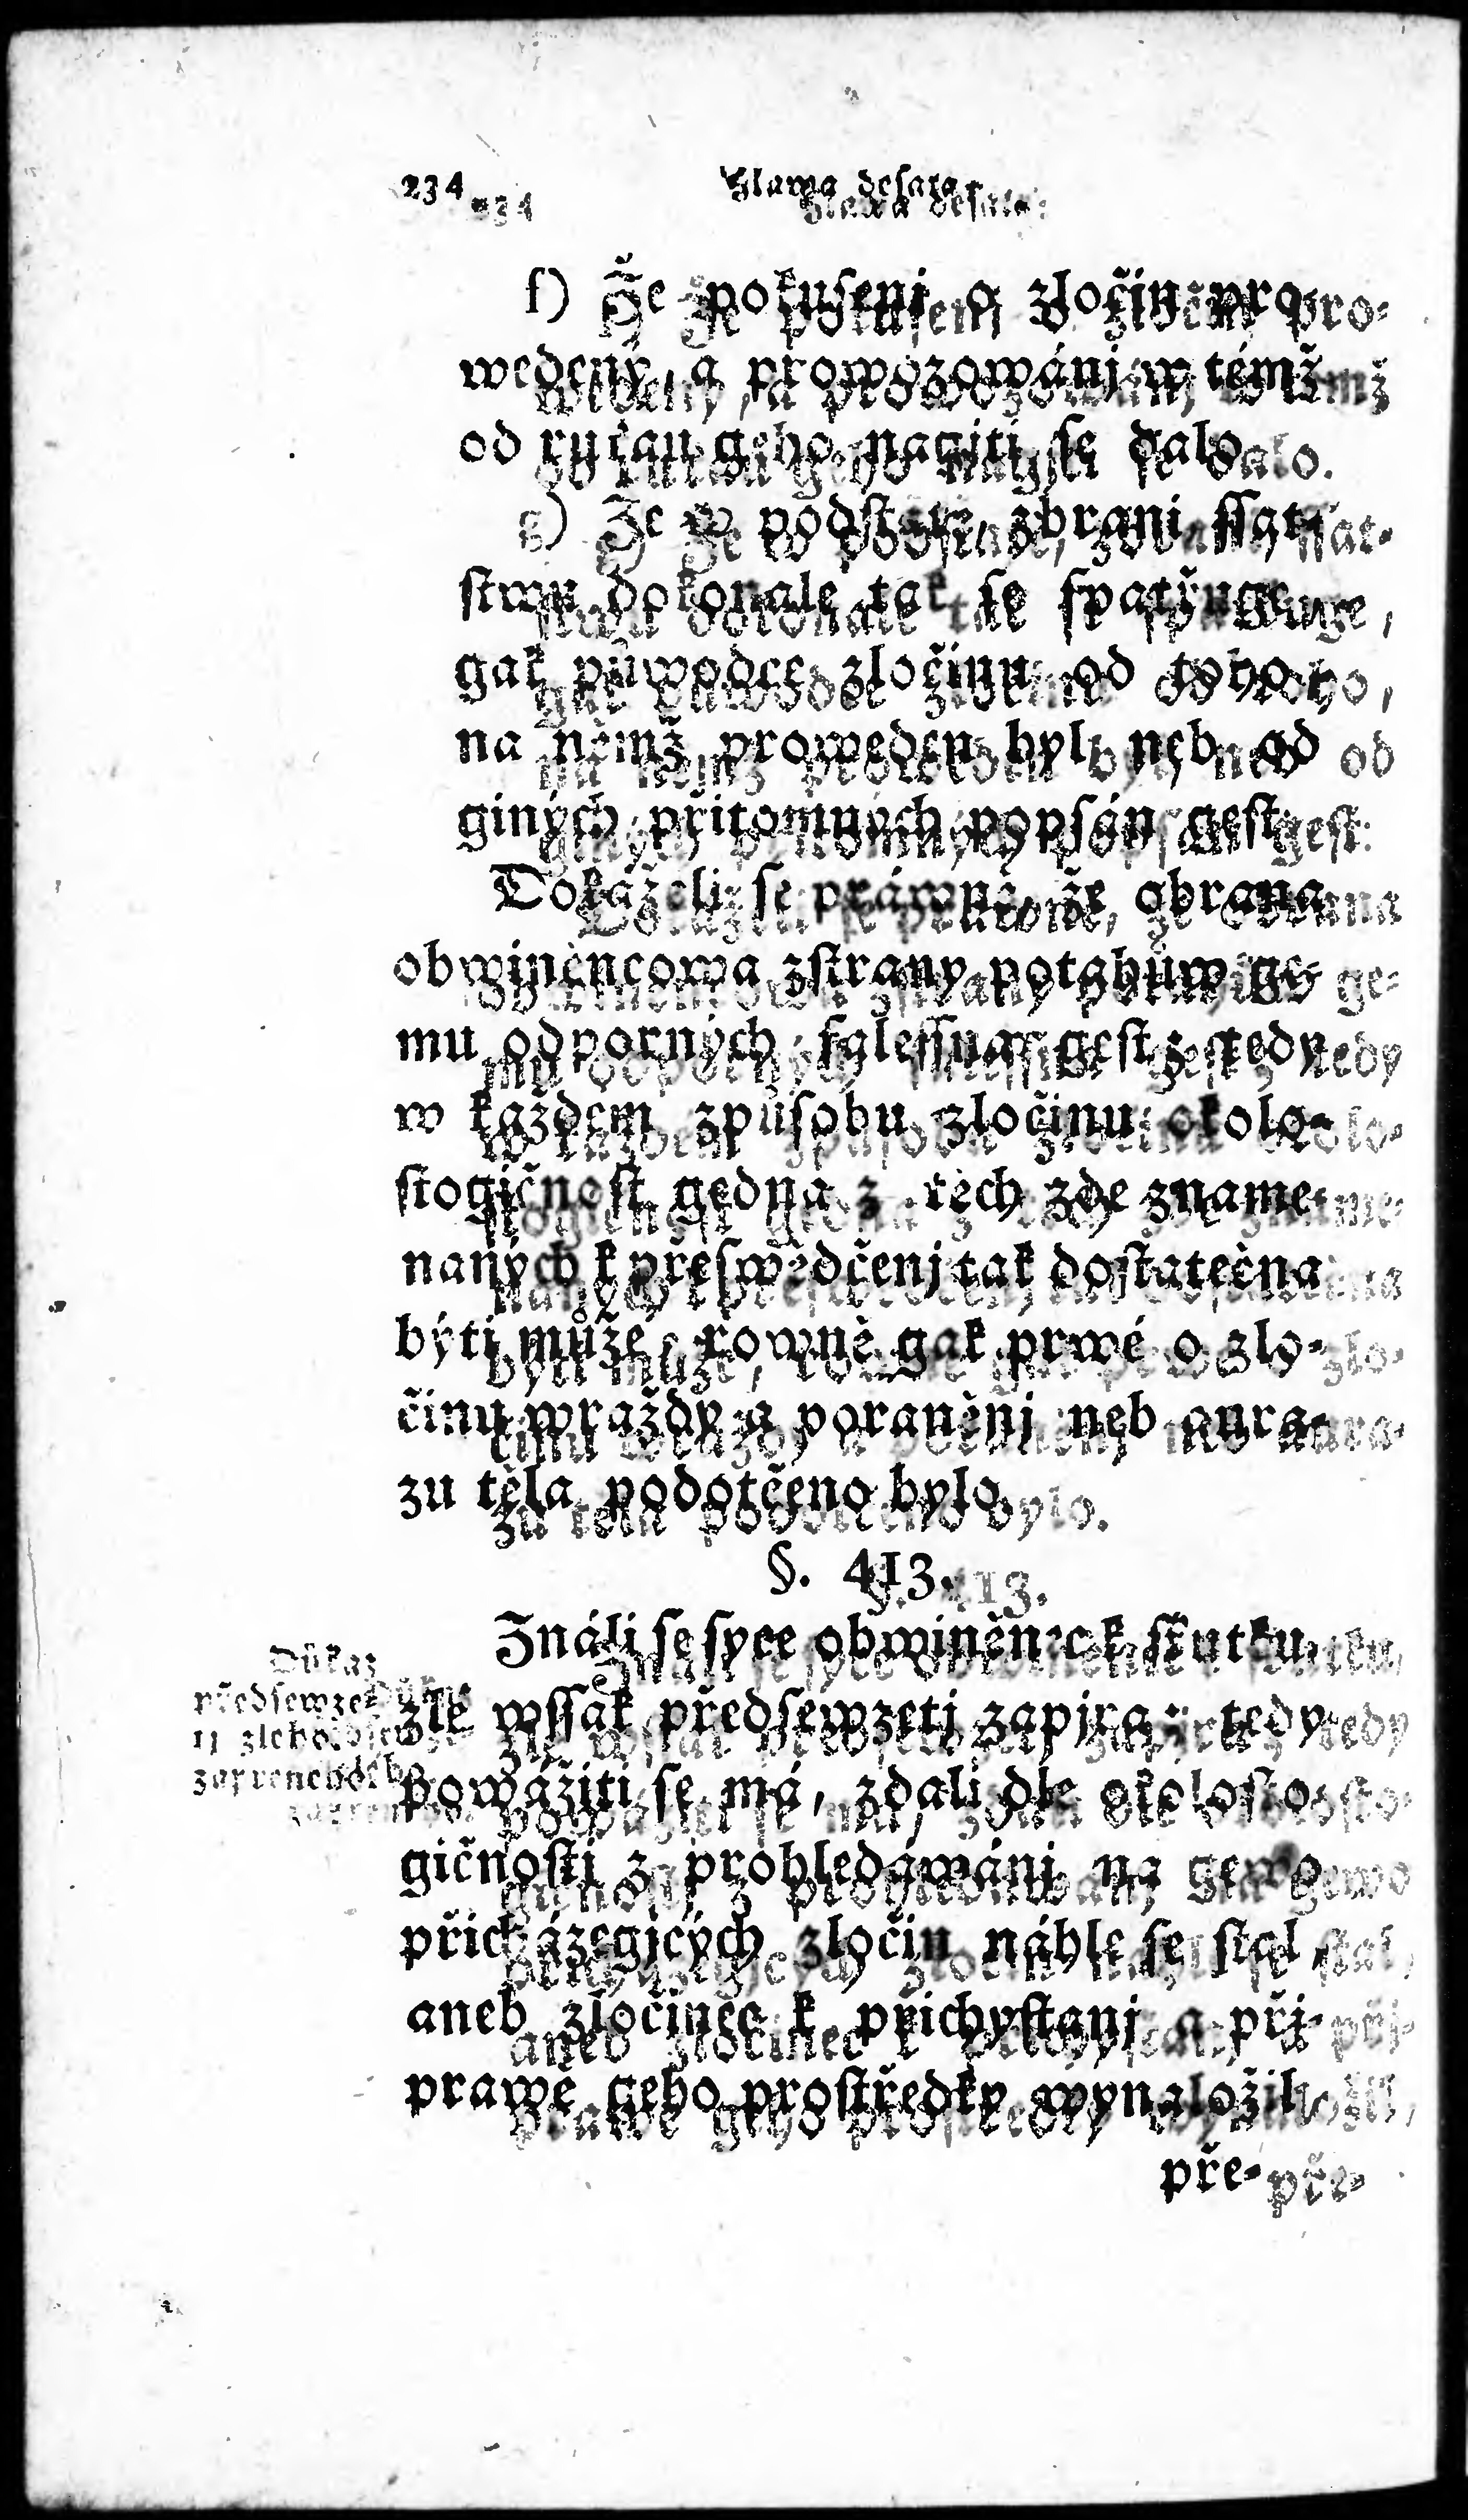 234 Hlawa desata.
f) Že pokusenj o zločin pro-
wedený, a prowozowánj w témž
od ručau geho nagiti se dalo.
g) Že w podstatě, zbrani ssat-
stwu dokonale tak se spatřuge,
gak půwodce zločinu od toho,
na němž proweden byl, neb od
giných přitomných popsán gest:
Dokáželi se práwně, že obrana
obwiněncowa zstrany potahůw ge-
mu odporných falessna gest; tedy
w každém způsobu zločinu okolo-
stogičnost gedna z těch zde zname-
naných k přeswědčenj tak dostatečna
býti může, rowně gak prwé o zlo-
činu wraždy a poraněnj neb aura-
zu těla podotčeno bylo.
§. 413.
Ználi se syce obwiněnec k skutku,
zlé wssak předsewzetj zapjra: tedy
powážiti se má, zdali dle okolosto-
gičnosti z prohledáwánj na gewo
přicházegjcých zločin náhle se stal,
aneb zločinec k přichystanj a při-
prawě geho prostředky wynaložil,
pře-
Důkaz
předsewze-
tj zleho
zapreneho